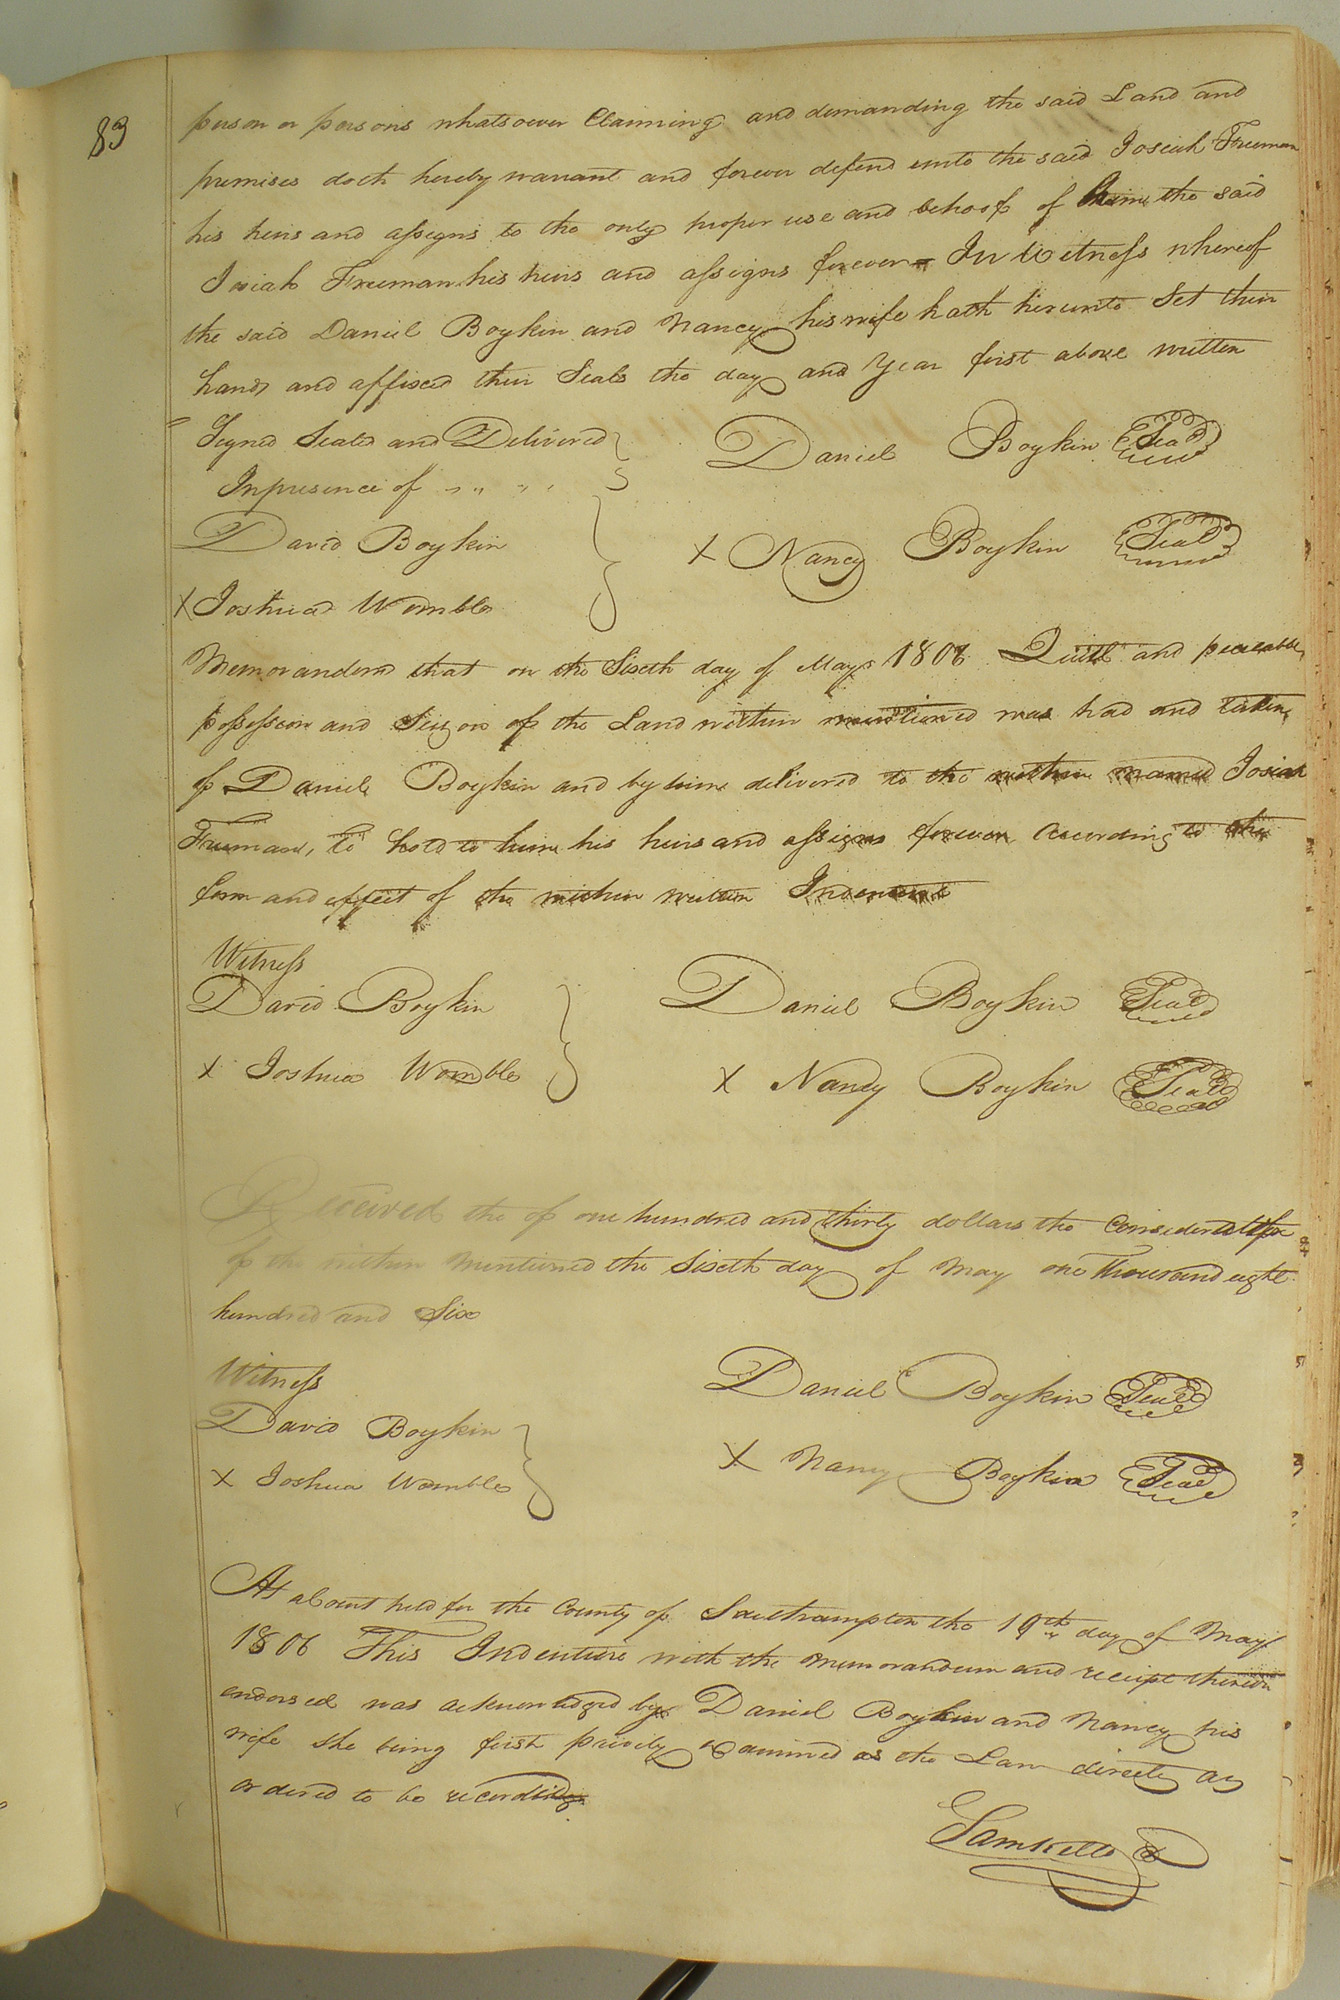 83
person or persons whatsoever Claiming and demanding the said Land and
premises doth hereby warrant and forever defend unto the said Josiah Freeman
his heirs and assigns to the only proper use and behoof of him the said
Josiah Freeman his heirs and assigns forever = In Witness whereof
the said Daniel Boykin and Nancy his wife hath hereunto Set their
hands and affixed their Seals the day and Year first above written
Signed Sealed and Delivered
In presence of
Daniel Boykin Seal
David Boykin
X Nancy Boykin Seal
X Joshua Womble
Memorandom that on the Sixth day of May 1806 Quiett and peaceable
possession and Seizon of the Land within mentioned was had and taken
of Daniel Boykin and by him delivered to the within named Josiah
Freeman, to hold to him his heirs and assigns forever According to the
form and effect of the within written Indenture
Witness
David Boykin
Daniel Boykin Seal
X Joshua Womble
X Nancy Boykin Seal
Received the of one hundred and thirty dollars the Consideration
of the within mentioned the Sixth day of May one Thousand eight
hundred and Six
Witness
Daniel Boykin Seal
David Boykin
X Nancy Boykin Seal
X Joshua Womble
At a Court held for the County of Southampton the 19th day of May
1806 This Indenture with the memorandum and receipt thereon
endorsed was acknowledged by Daniel Boykin and Nancy his
wife she being first privily examined as the Law directs
ordered to be recorded
Sam Kello